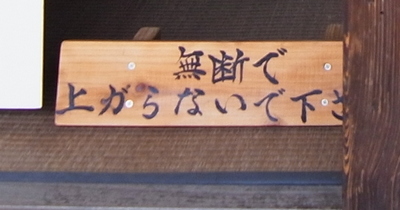 無断で
上がらないで下さ